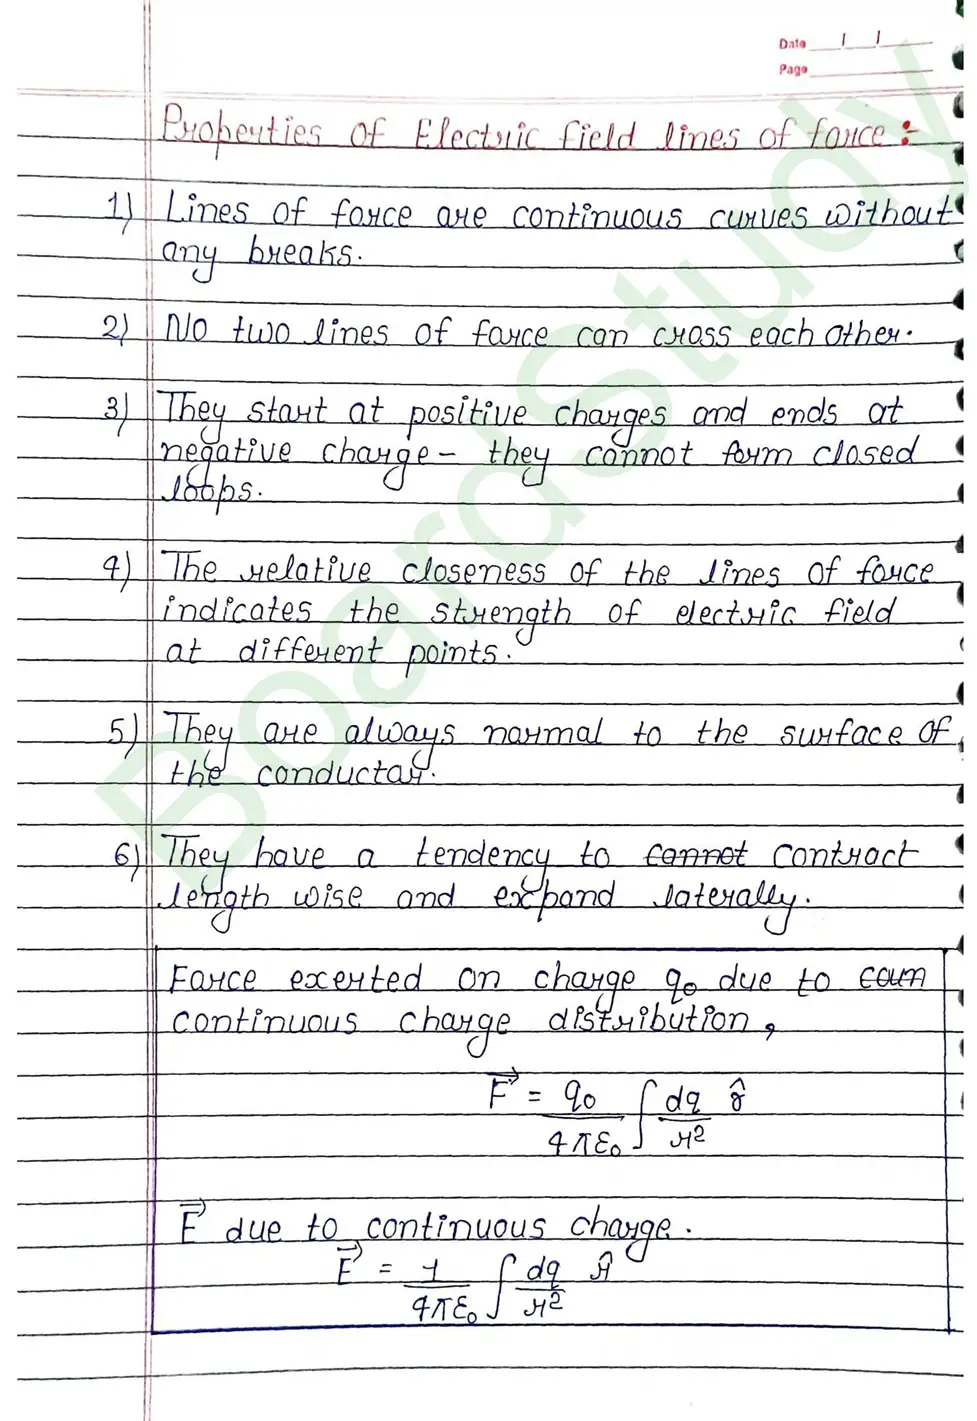 Date / /
Page
Properties of Electric field lines of force :-
1) Lines of force are continuous curves without
any breaks.
2) No two lines of force can cross each other.
3) They start at positive charges and ends at
negative charge - they cannot form closed
loops.
4) The relative closeness of the lines of force
indicates the strength of electric field
at different points.
5) They are always normal to the surface of
the conductor.
6) They have a tendency to cannot contract
length wise and expand laterally.
Force exerted on charge q₀ due to coun
continuous charge distribution,
F⃗ = q₀/4πε₀ ∫ dq/r² r̂
E⃗ due to continuous charge.
E⃗ = 1/4πε₀ ∫ dq/r² r̂
BoardStudy